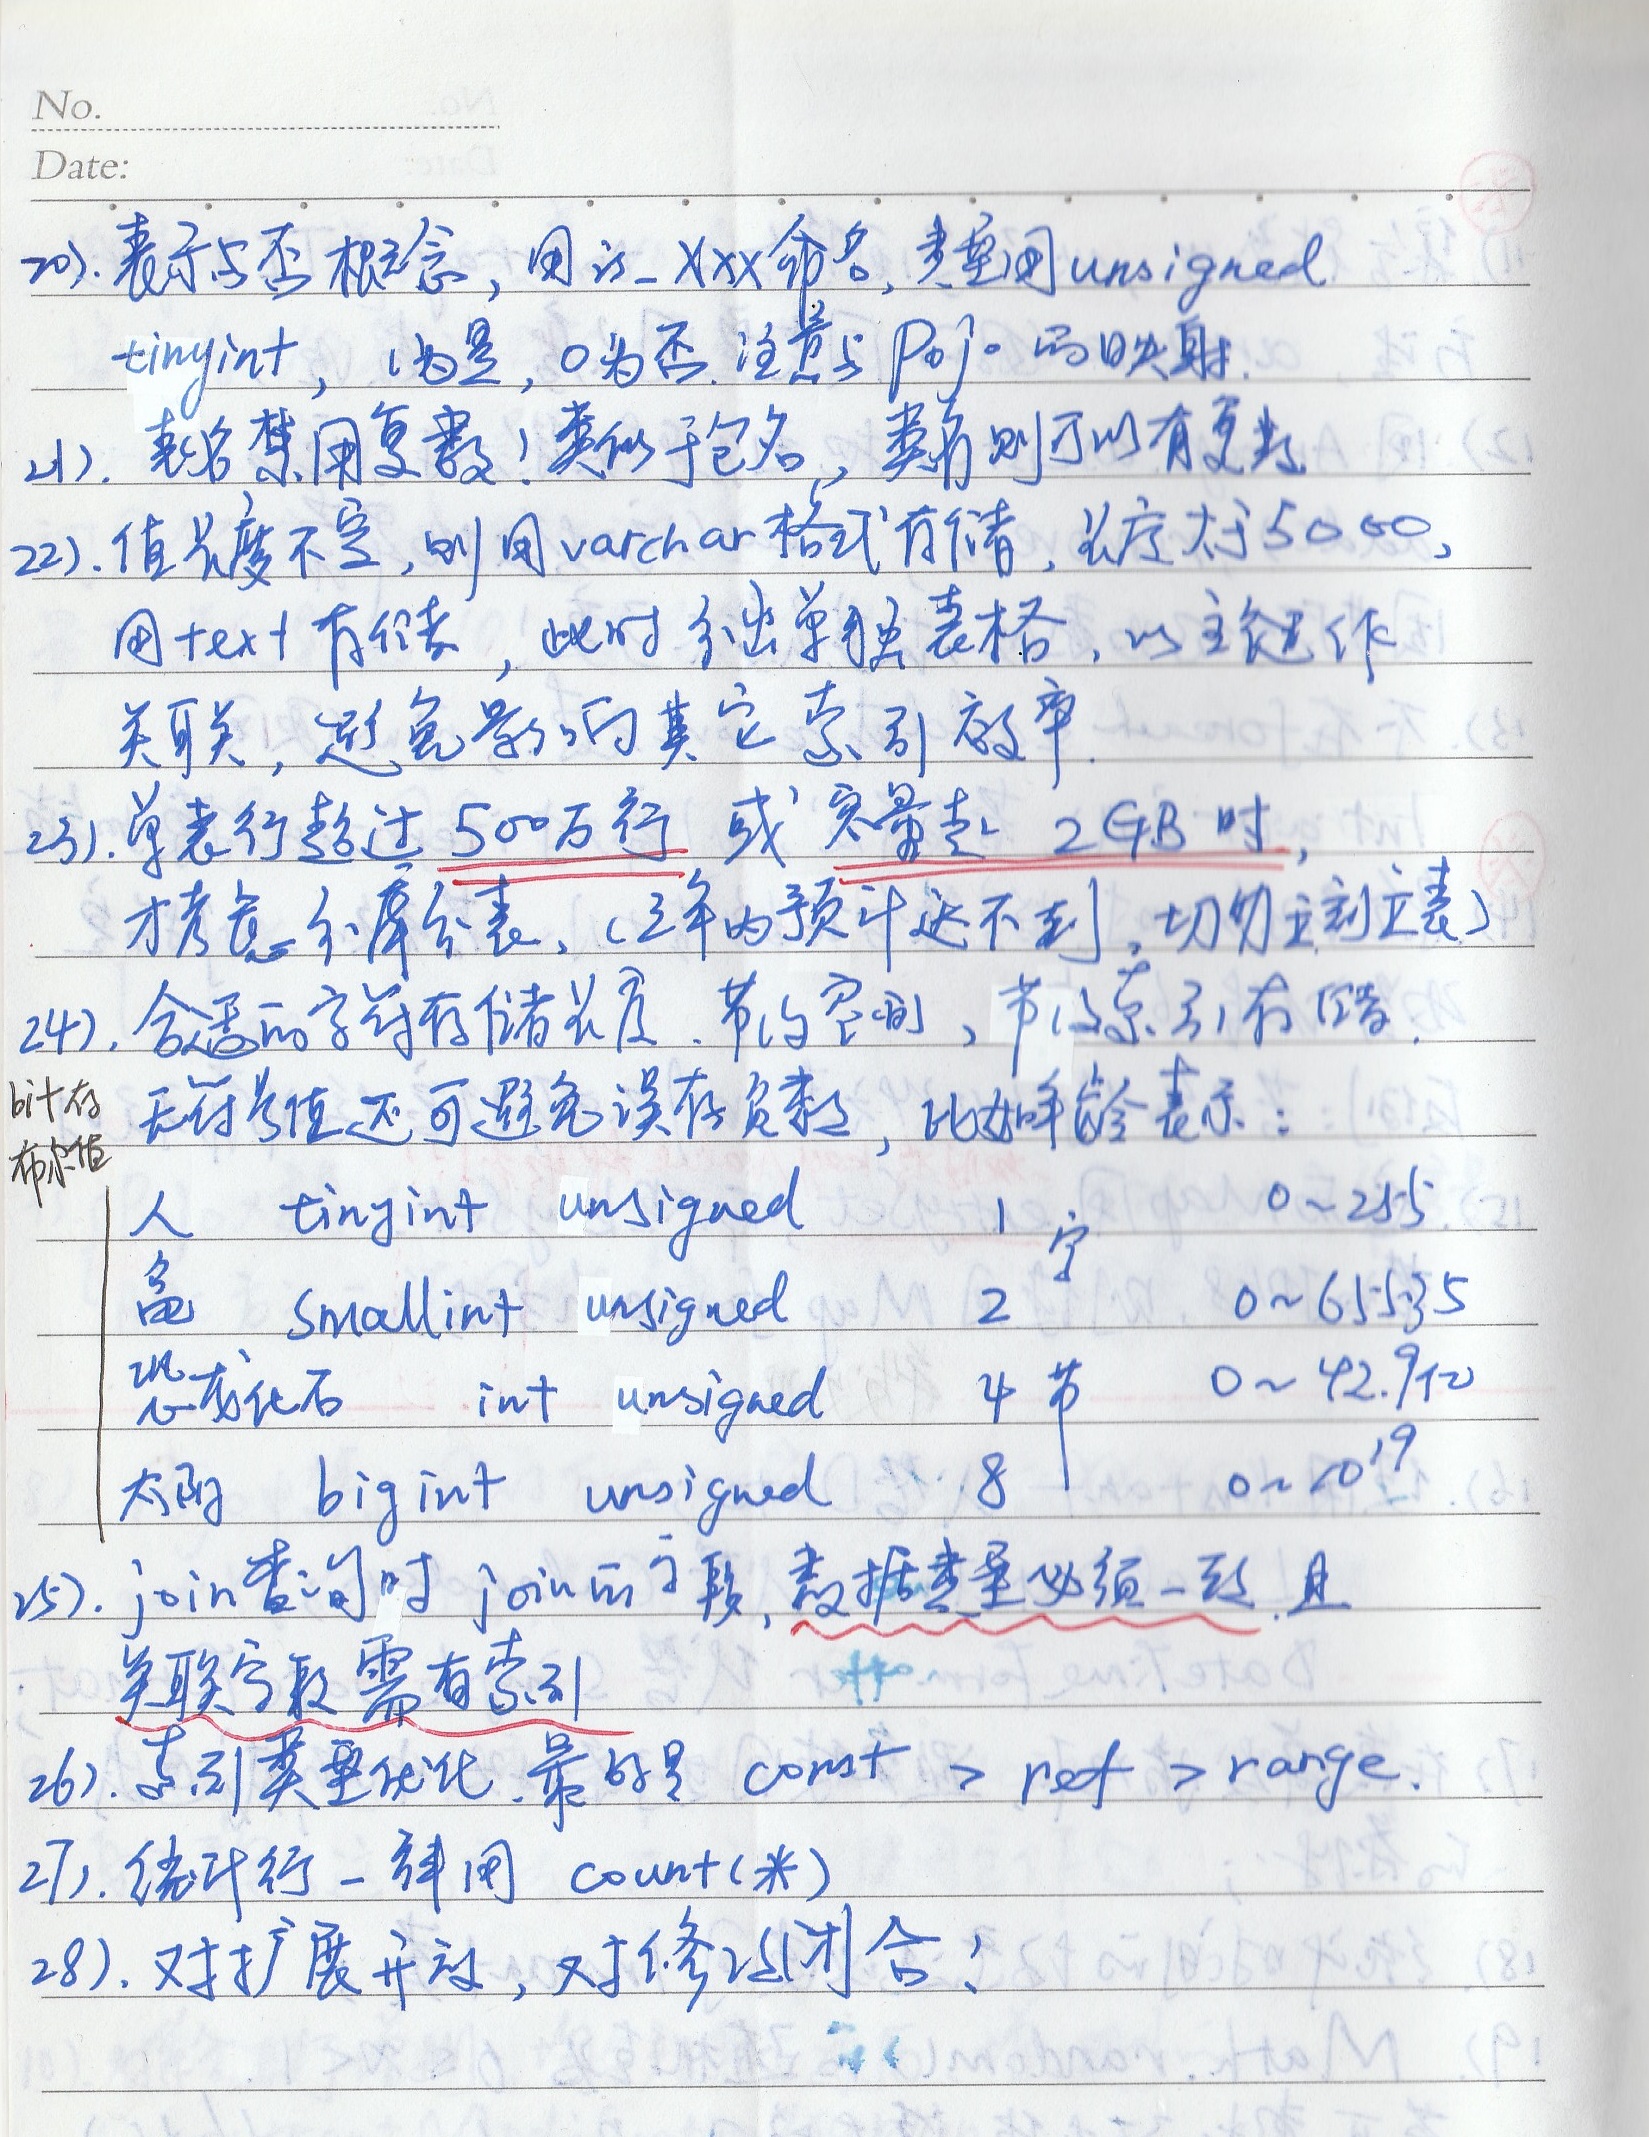 No.
Date:
20). 表示与否概念，用is_xxx命名，类型用unsigned
tinyint，1为是，0为否. 注意与Pojo的映射.
21). 表名禁用复数！类似于包名，类名则可以有复数
22). 值长度不定，则用varchar格式存储，长度大于5000，
用text存储，此时分出单独表格，以主键作
关联，避免影响其它索引效率.
23). 单表行超过500万行 或 容量超 2GB时，
才考虑分库分表，（三年内预计达不到，切勿立刻立表）
24). 合适的字符存储长度. 节约空间，节约索引存储.
bit存
布尔值
无符号值还可避免误存负数，比如年龄表示：
人 tinyint unsigned 1 字 0~255
龟 smallint unsigned 2 0~65535
恐龙化石 int unsigned 4 节 0~42.9亿
太阳 bigint unsigned 8 0~10¹⁹
25). join查询时 join的字段，数据类型必须一致 且
关联字段需有索引
26). 索引类型优化. 最好是 const > ref > range.
27). 统计行一律用 count(*)
28). 对扩展开放，对修改闭合！